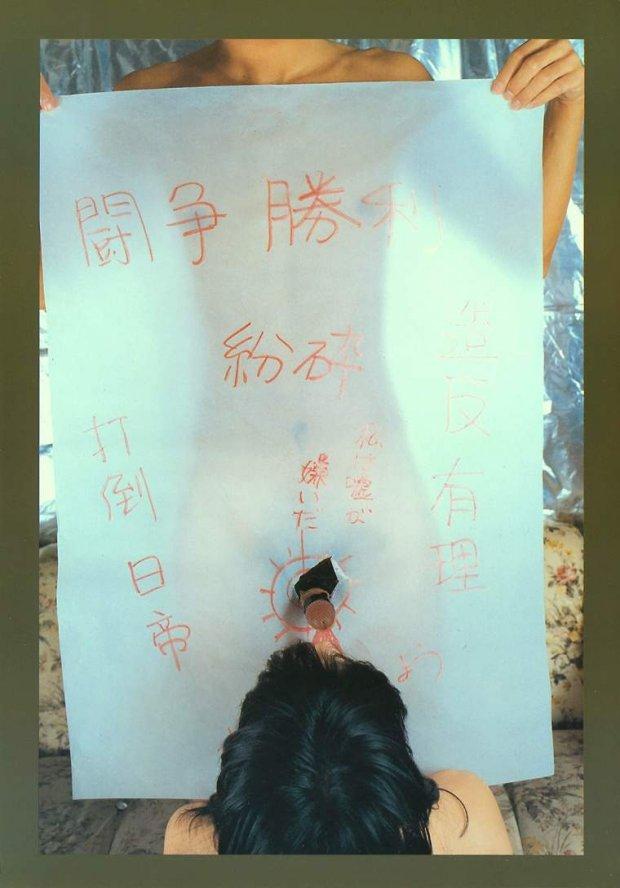 闘争勝利
紛砕
造反有理
私は嘘が
嫌いだ
打倒日帝